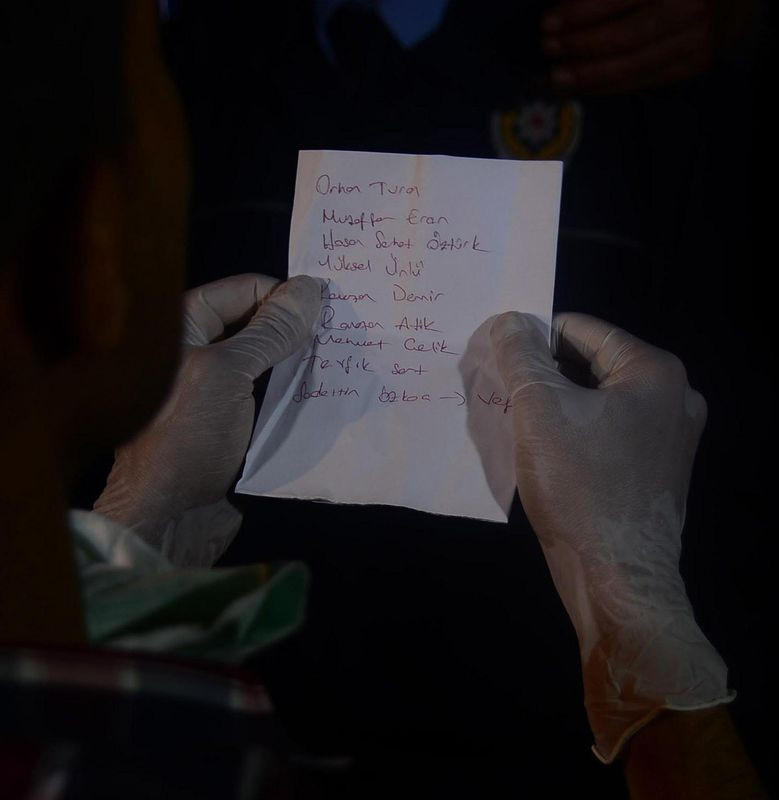 Orhan Turan
Muzaffer Eran
Hasan Sehat Öztürk
Yüksel Ünlü
Demir
Ramazan Atik
Mehmet Çelik
Tevfik Sert
Sadettin Özkoa → Vef